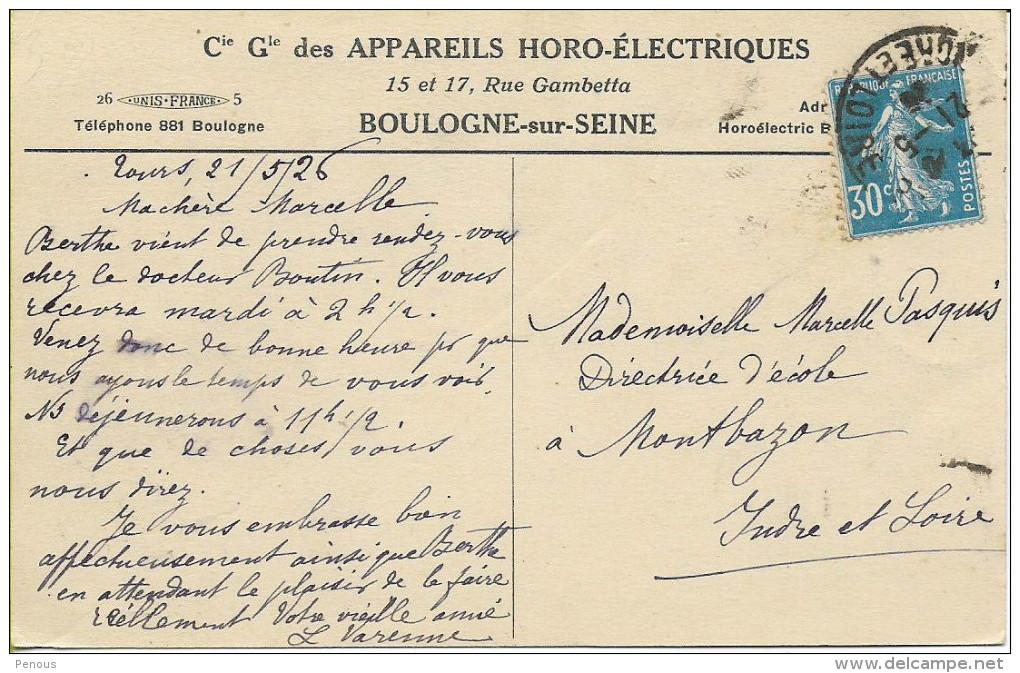 Cie Gle des APPAREILS HORO-ÉLECTRIQUES
15 et 17, Rue Gambetta
26 UNIS-FRANCE 5
Téléphone 881 Boulogne
BOULOGNE-sur-SEINE
Adr
Horoélectric B
REPUBLIQUE FRANÇAISE
30c
POSTES
INDRE ET LOIRE
21 -5
Tours, 21/5/26
Machère Marcelle
Berthe vient de prendre rendez-vous
chez le docteur Boutin. Il vous
recevra mardi à 2 h 1/2.
Venez donc de bonne heure pr que
nous ayons le temps de vous voir.
Ns déjeunerons à 11h 1/2.
Et que de choses vous
nous direz.
Je vous embrasse bien
affectueusement ainsi que Berthe
en attendant le plaisir de le faire
réellement Votre vieille amie
L Varenne
Mademoiselle Marcelle Pasquis
Directrice d'école
à Montbazon
Indre et Loire
Penous
delcampe.net